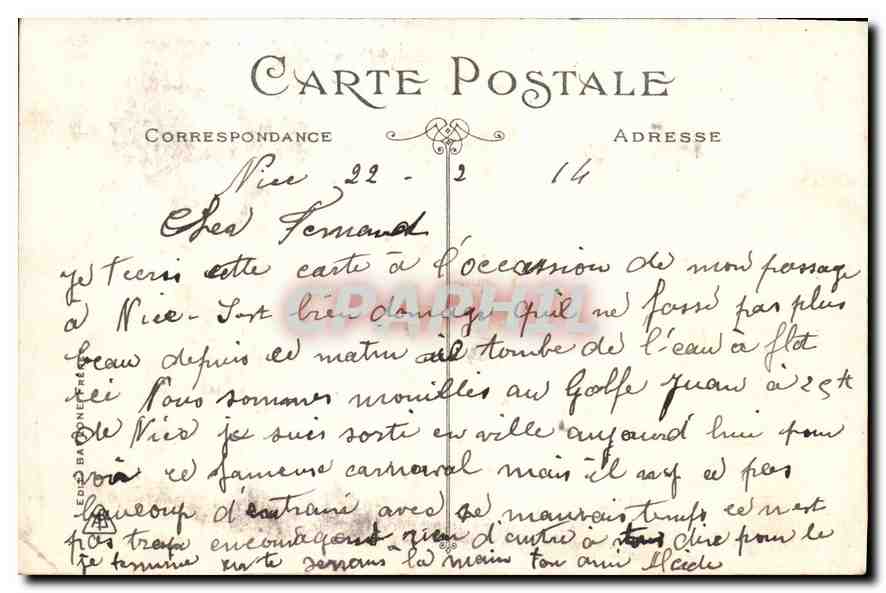 CARTE POSTALE
CORRESPONDANCE
ADRESSE
Nice 22 - 2 14
Cher Fernand
je t'ecris cette carte à l'occassion de mon passage
à Nice - s'est bien domage qu'il ne fasse pas plus
beau depuis ce matin il tombe de l'eau à flot
ici Nous sommes mouillés au Golfe Juan à 25 k
de Nice je suis sorti en ville aujourd hui pour
voir ce fameux carnaval mais il n'y a pas
beaucoup d'entrain avec ce mauvais temps ce n'est
pas trop encourageant rien d'autre à dire pour le
je termine serrons la main ton ami
EDIT. FRÈRES
CPAPHIL